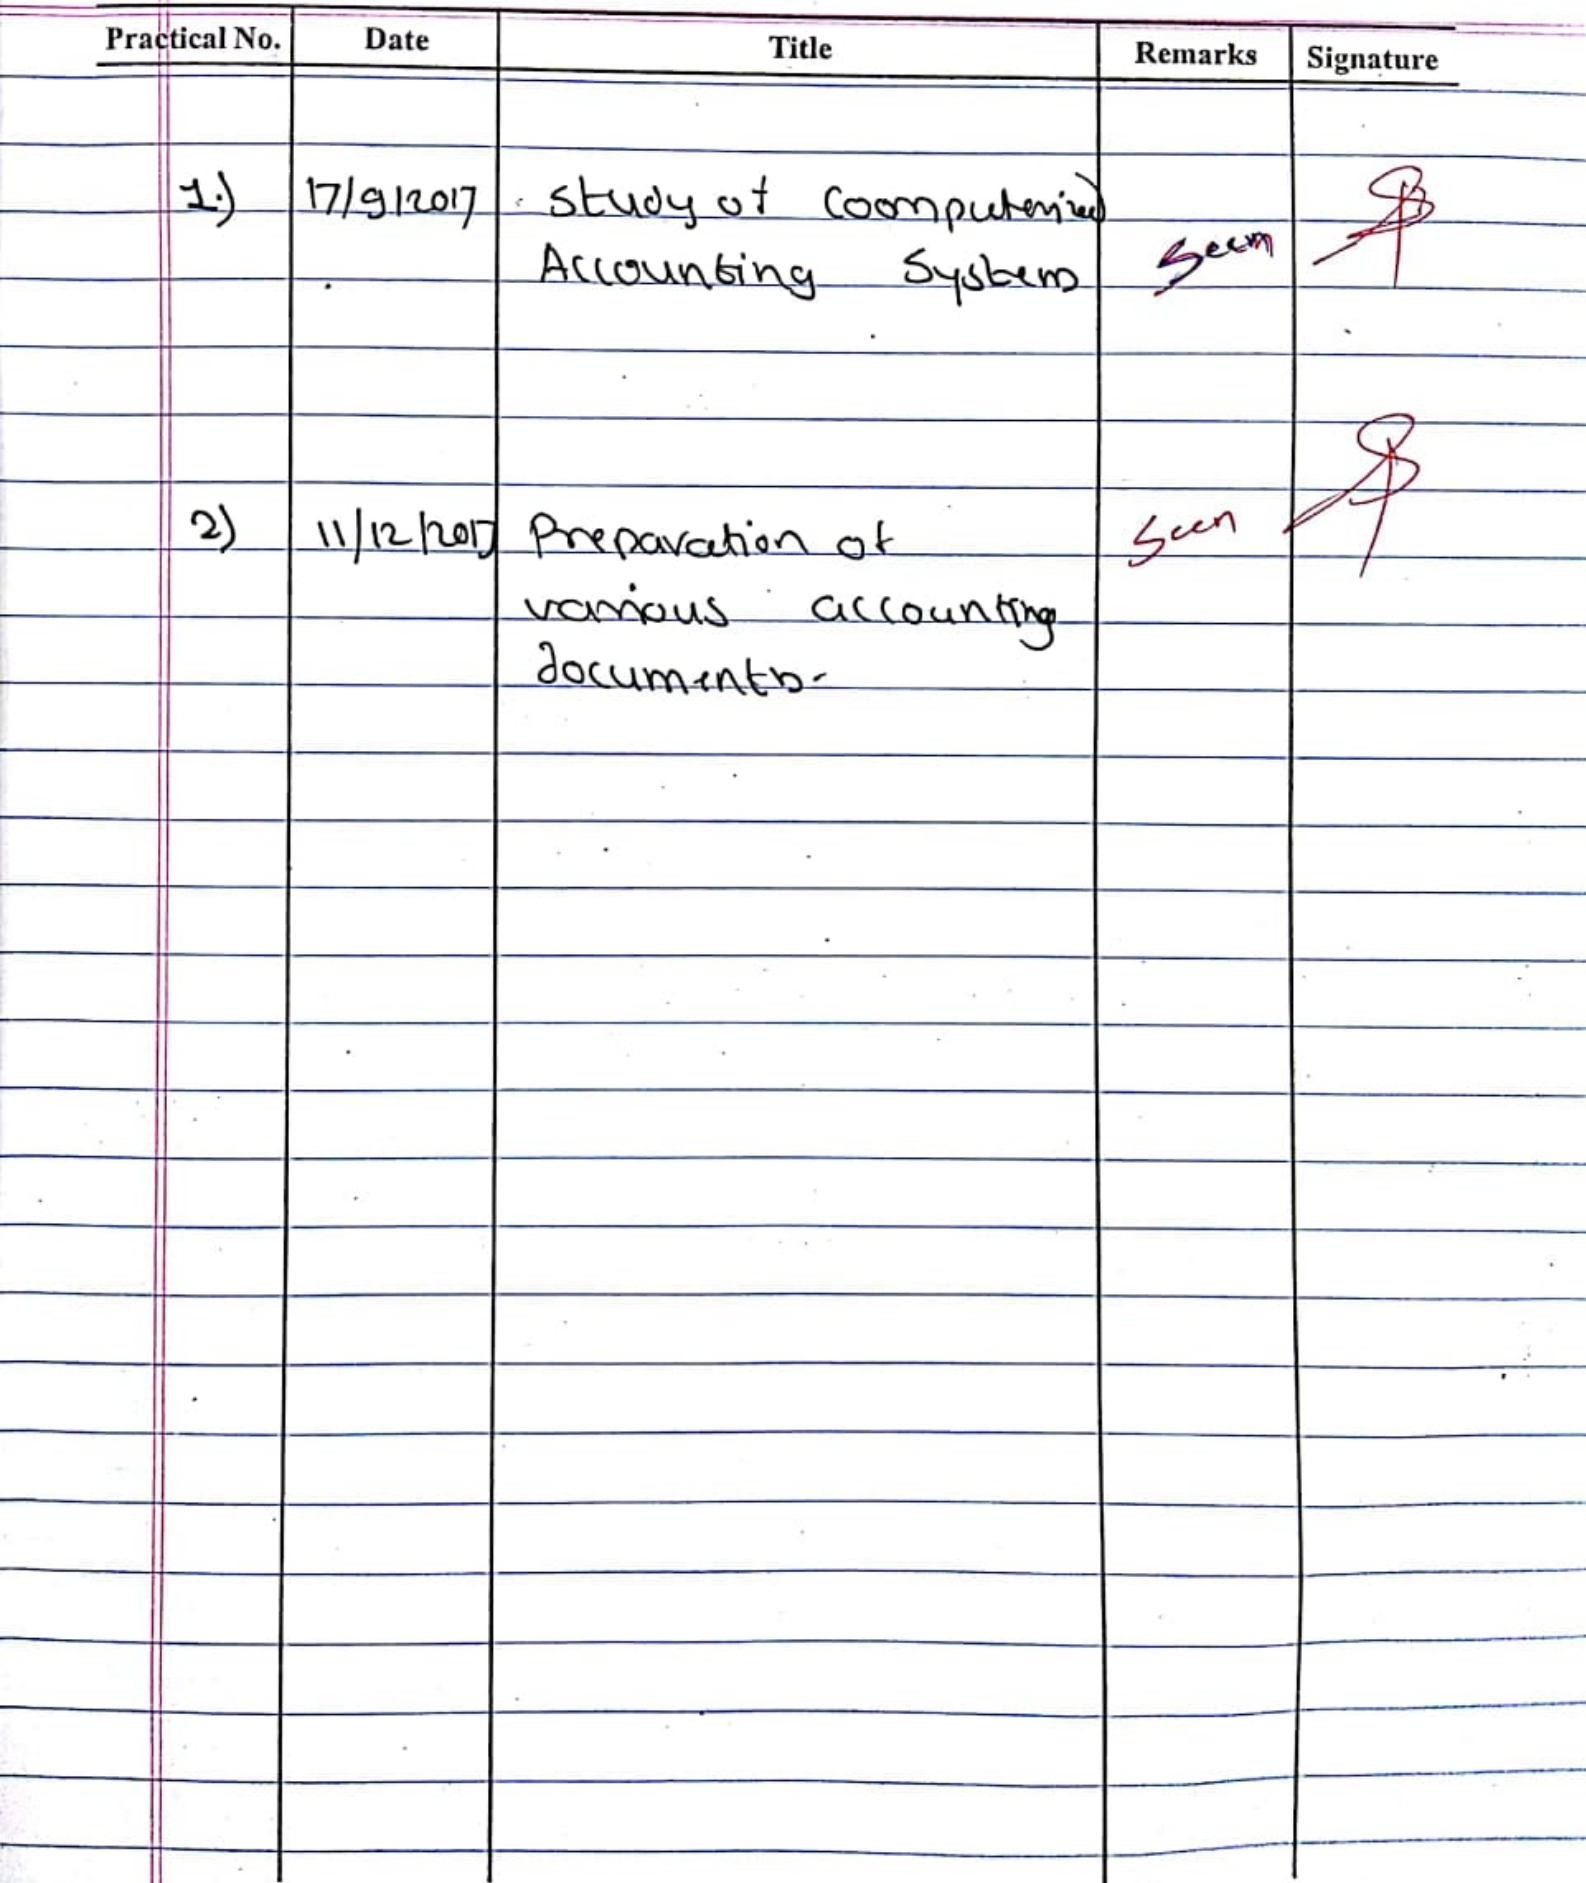 Practical No. Date Title Remarks Signature
1.) 17/9/2017 Study of Coomputerized
Accounting System Seen
2) 11/12/2017 Preparation of Seen
various accounting
documents.